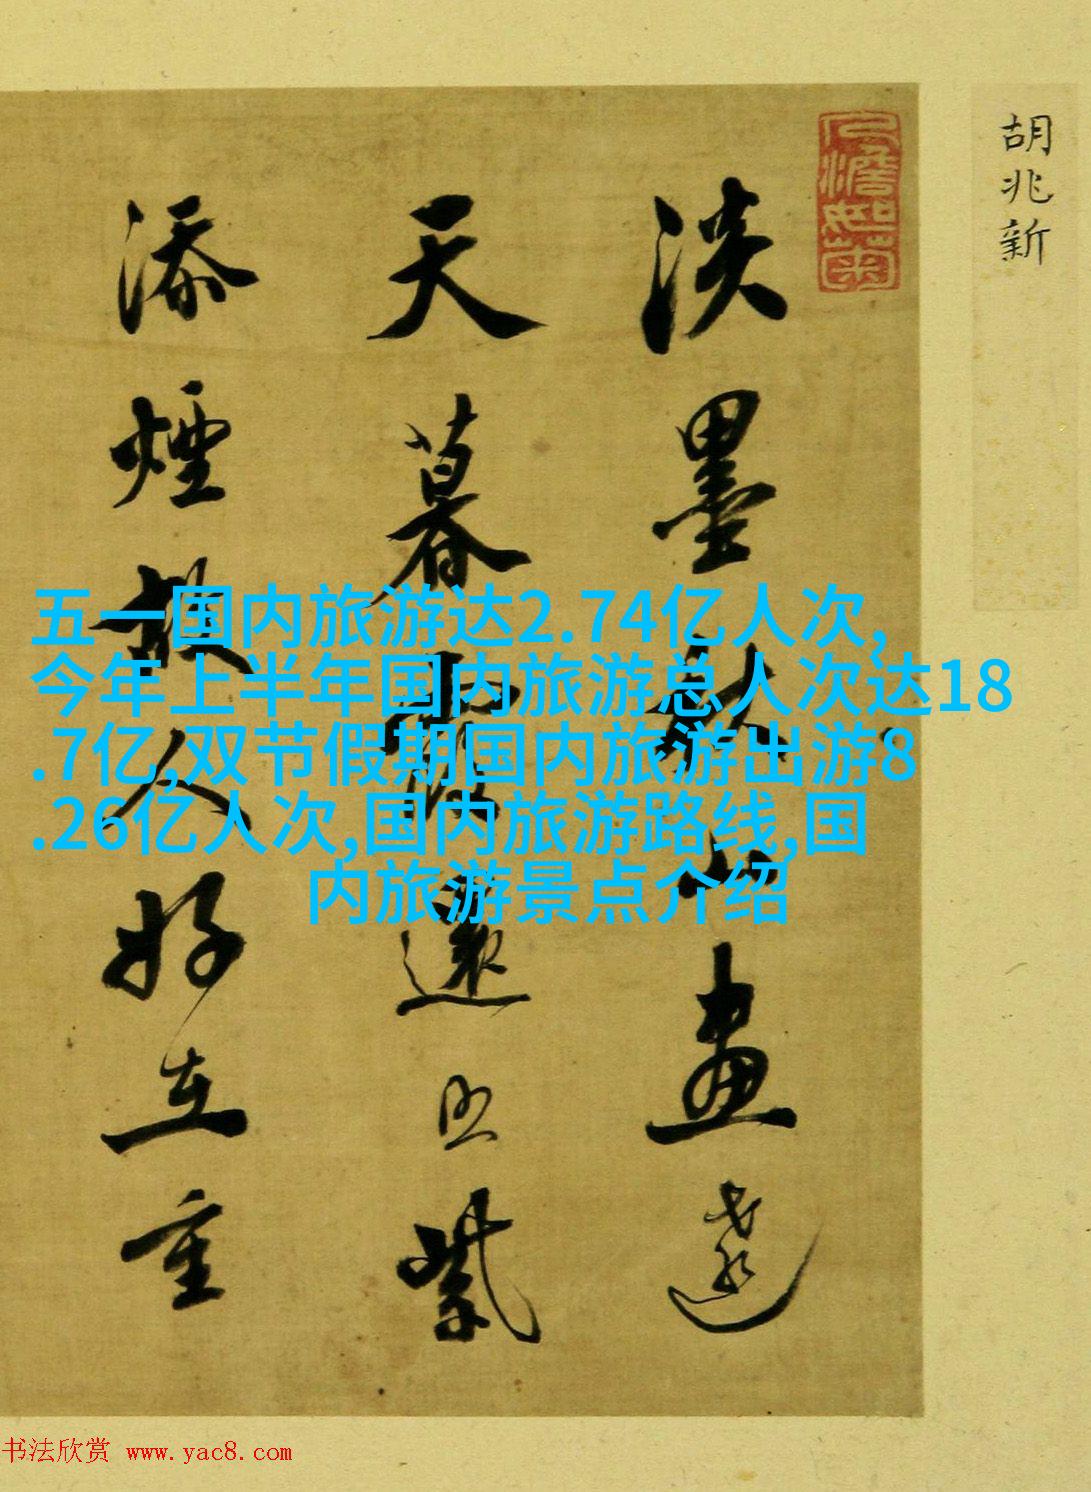 胡兆新
淡墨秋山畫遠
天暮霞還照紫
添煙故人好在重
五一国内旅游达2.74亿人次,
今年上半年国内旅游总人次达18
.7亿,双节假期国内旅游出游8
.26亿人次,国内旅游路线,国
内旅游景点介绍
书法欣赏 www.yac8.com